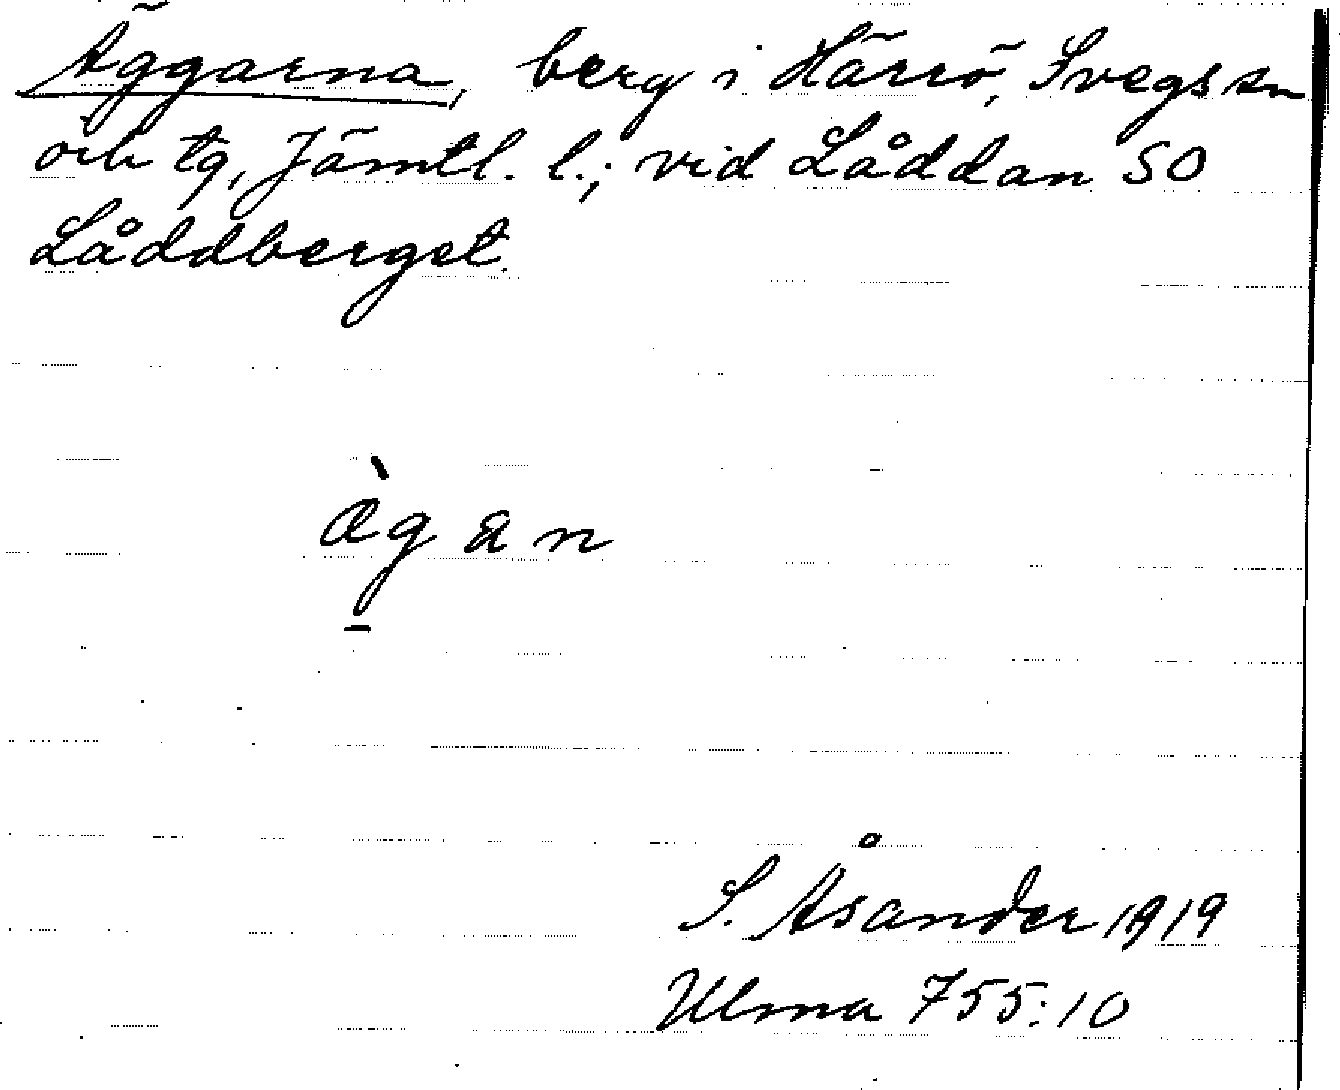 Äggarna, berg i Härrö, Svegs sn
och tg, Jämtl. l.; vid Låddan SO
Låddberget.
ǣ̀g a n
S. Åsander 1919
Ulma 755:10